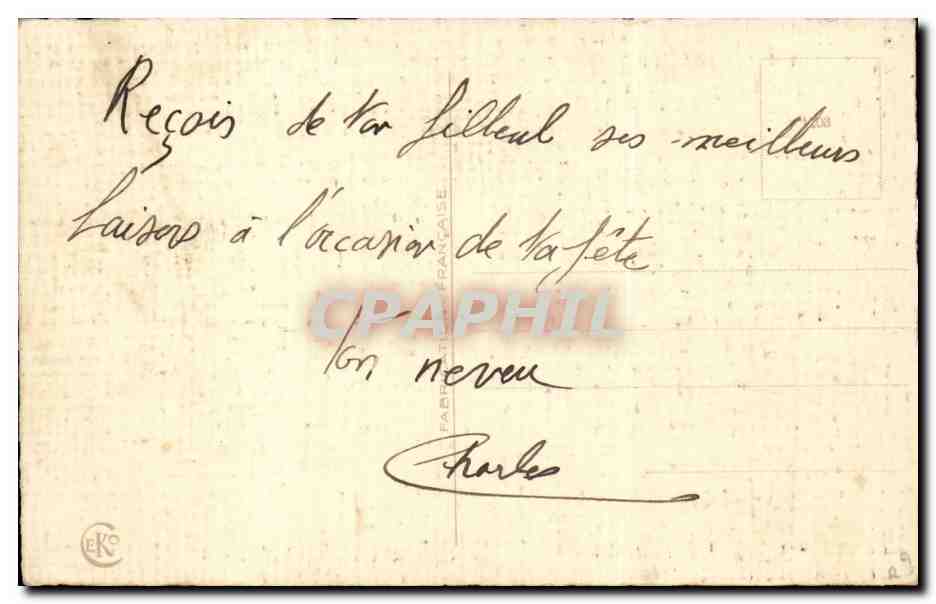 Reçois de ton filleul ses meilleurs
baisers à l'occasion de ta fête
ton neveu
Charles
FABRICATION FRANÇAISE
CPAPHIL
EKO